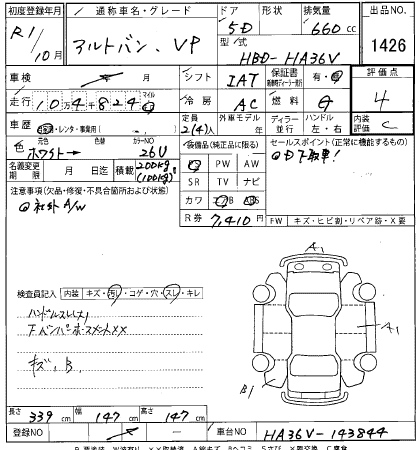 初度登録年月 / 通称車名・グレード ドア 形状 排気量 出品NO.
R1/10月 アルトバン、VP 5D 660cc 1426
型式 HBD-HA36V
車検 年 月 シフト IAT 保証書 有・無 評価点
走行 10万4千824 km マイル 冷房 AC 燃料 G 4
車歴 自家用・レンタ・事業用( ) 定員 2(4)人 外車モデル 年 ディーラー 並行 ハンドル 左・右 内装 C
色 元色 色替 カラーNO 装備品(純正品に限る) セールスポイント(正常に機能するもの)
ホワイト→ 26U PS PW AW ◎下取車!
名義変更期限 月 日迄 積載 200kg (100kg) SR TV ナビ
注意事項(欠品・修復・不具合箇所および状態) カワ エアB ABS
◎社外A/W R券 7,410円 FW キズ・ヒビ割・リペア跡・X要
検査員記入 内装 キズ・汚れ・コゲ・穴・スレ・キレ
ハンドルスレ(大)
下バンパーホースメントXX
キズ、B
A1
A1
B1
長さ 339cm 幅 147cm 高さ 147cm
登録NO 車台NO HA36V-143844